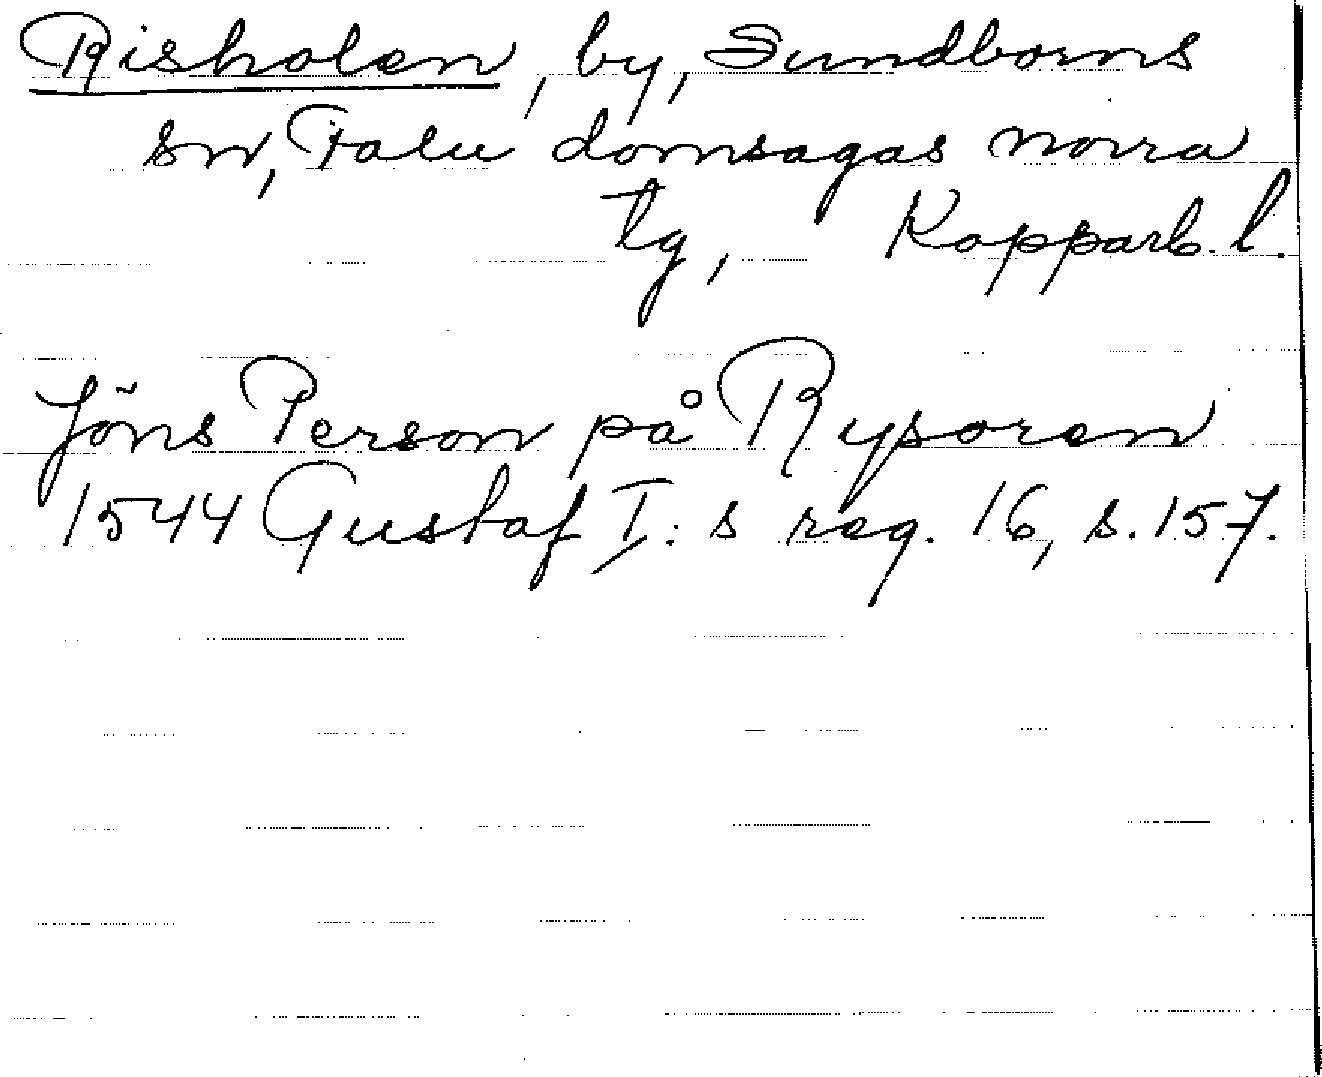 Risholen, by, Sundborns
sn, Falu domsagas norra
tg, Kopparb. l.
Jöns Person på Rysoren
1544 Gustaf I:s reg. 16, s. 157.